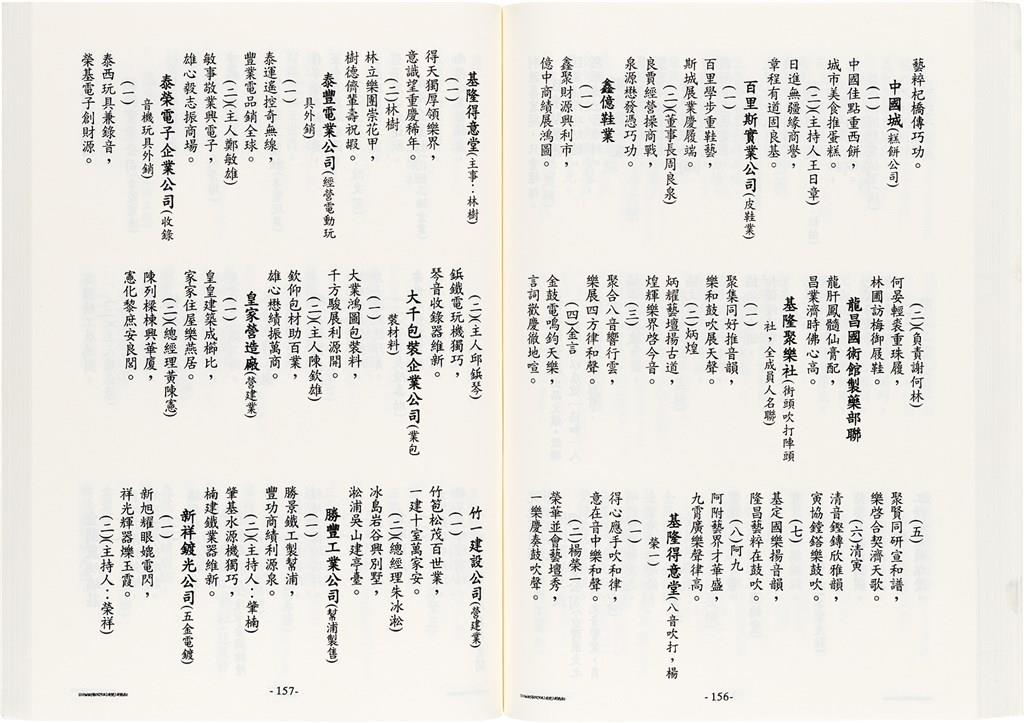 藝粹杞橋傳巧功。
中國城(糕餅公司)
(一)
中國佳點重西餅,
城市美食推蛋糕。
(二)(主持人王日章)
日進無疆緣商譽,
章程有道固良基。
百里斯實業公司(皮鞋業)
(一)
百里學步重鞋藝,
斯城展業慶履端。
(二)(董事長周良泉)
良賈經營操商戰,
泉源懋發憑巧功。
鑫億鞋業
(一)
鑫聚財源興利市,
億中商績展鴻圖。
(二)(負責謝何林)
何晏輕裘重珠履,
林國訪梅御屐鞋。
龍昌國術館製藥部聯
龍肝鳳髓仙膏配,
昌業濟時佛心高。
基隆聚樂社(街頭吹打陣頭
社,全成員人名聯)
(一)
聚集同好推音韻,
樂和鼓吹展天聲。
(二)炳煌
炳耀藝壇揚古道,
煌輝樂界啓今音。
(三)
聚合八音響行雲,
樂展四方律和聲。
(四)金言
金鼓電鳴鈞天樂,
言詞歡慶徹地喧。
(五)
聚賢同研宣和譜,
樂啓合契濟天歌。
(六)清寅
清音鏗鏄欣雅韻,
寅協鏜鎝樂鼓吹。
(七)
基定國樂揚音韻,
隆昌藝粹在鼓吹。
(八)阿九
阿附藝界才華盛,
九霄廣樂聲律高。
基隆得意堂(八音吹打,楊
榮一)
(一)
得心應手吹和律,
意在音中樂和聲。
(二)楊榮一
榮華並會藝壇秀,
一樂慶奏鼓吹聲。
-156-
基隆得意堂(主事:林樹)
(一)
得天獨厚領樂界,
意識望重慶稀年。
(二)林樹
林立樂團崇花甲,
樹德儕輩壽祝嘏。
泰豐電業公司(經營電動玩
具外銷)
(一)
泰運遙控奇無線,
豐業電品銷全球。
(二)(主人鄭敏雄)
敏事敬業興電子,
雄心毅志振商場。
泰榮電子企業公司(收錄
音機玩具外銷)
(一)
泰西玩具兼錄音,
榮基電子創財源。
(二)(主人邱鋲琴)
鋲鐵電玩機獨巧,
琴音收錄器維新。
大千包裝企業公司(業包
裝材料)
(一)
大業鴻圖包裝料,
千方駿展利源開。
(二)(主人陳欽雄)
欽仰包材助百業,
雄心懋績振萬商。
皇家營造廠(營建業)
(一)
皇皇建築成櫛比,
家家住屋樂燕居。
(二)(總經理黃陳憲)
陳列樑棟興華廈,
憲化黎庶安良閭。
竹一建設公司(營建業)
(一)
竹苞松茂百世業,
一建十室萬家安。
(二)(總經理朱冰淞)
冰島岩谷興別墅,
淞浦吳山建亭臺。
勝豐工業公司(幫浦製售)
(一)
勝景鐵工製幫浦,
豐功商績利源泉。
(二)(主持人:肇楠)
肇基水源機獨巧,
楠建鐵業器維新。
新祥鍍光公司(五金電鍍)
(一)
新旭耀眼媲電閃,
祥光輝器爍玉霞。
(二)(主持人:榮祥)
-157-